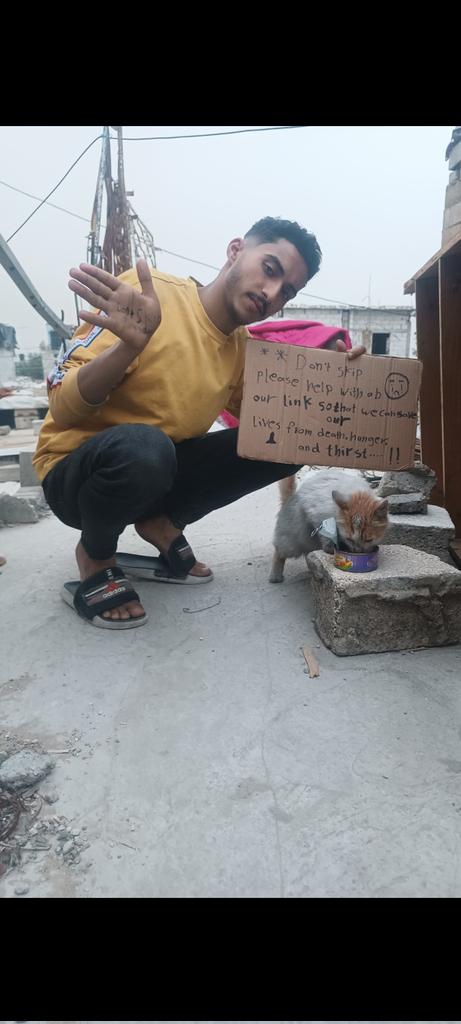 * * Don't skip
please help with a b
our link so that we can save
our
Lives from death, hunger,
and thirst.... !!
adidas